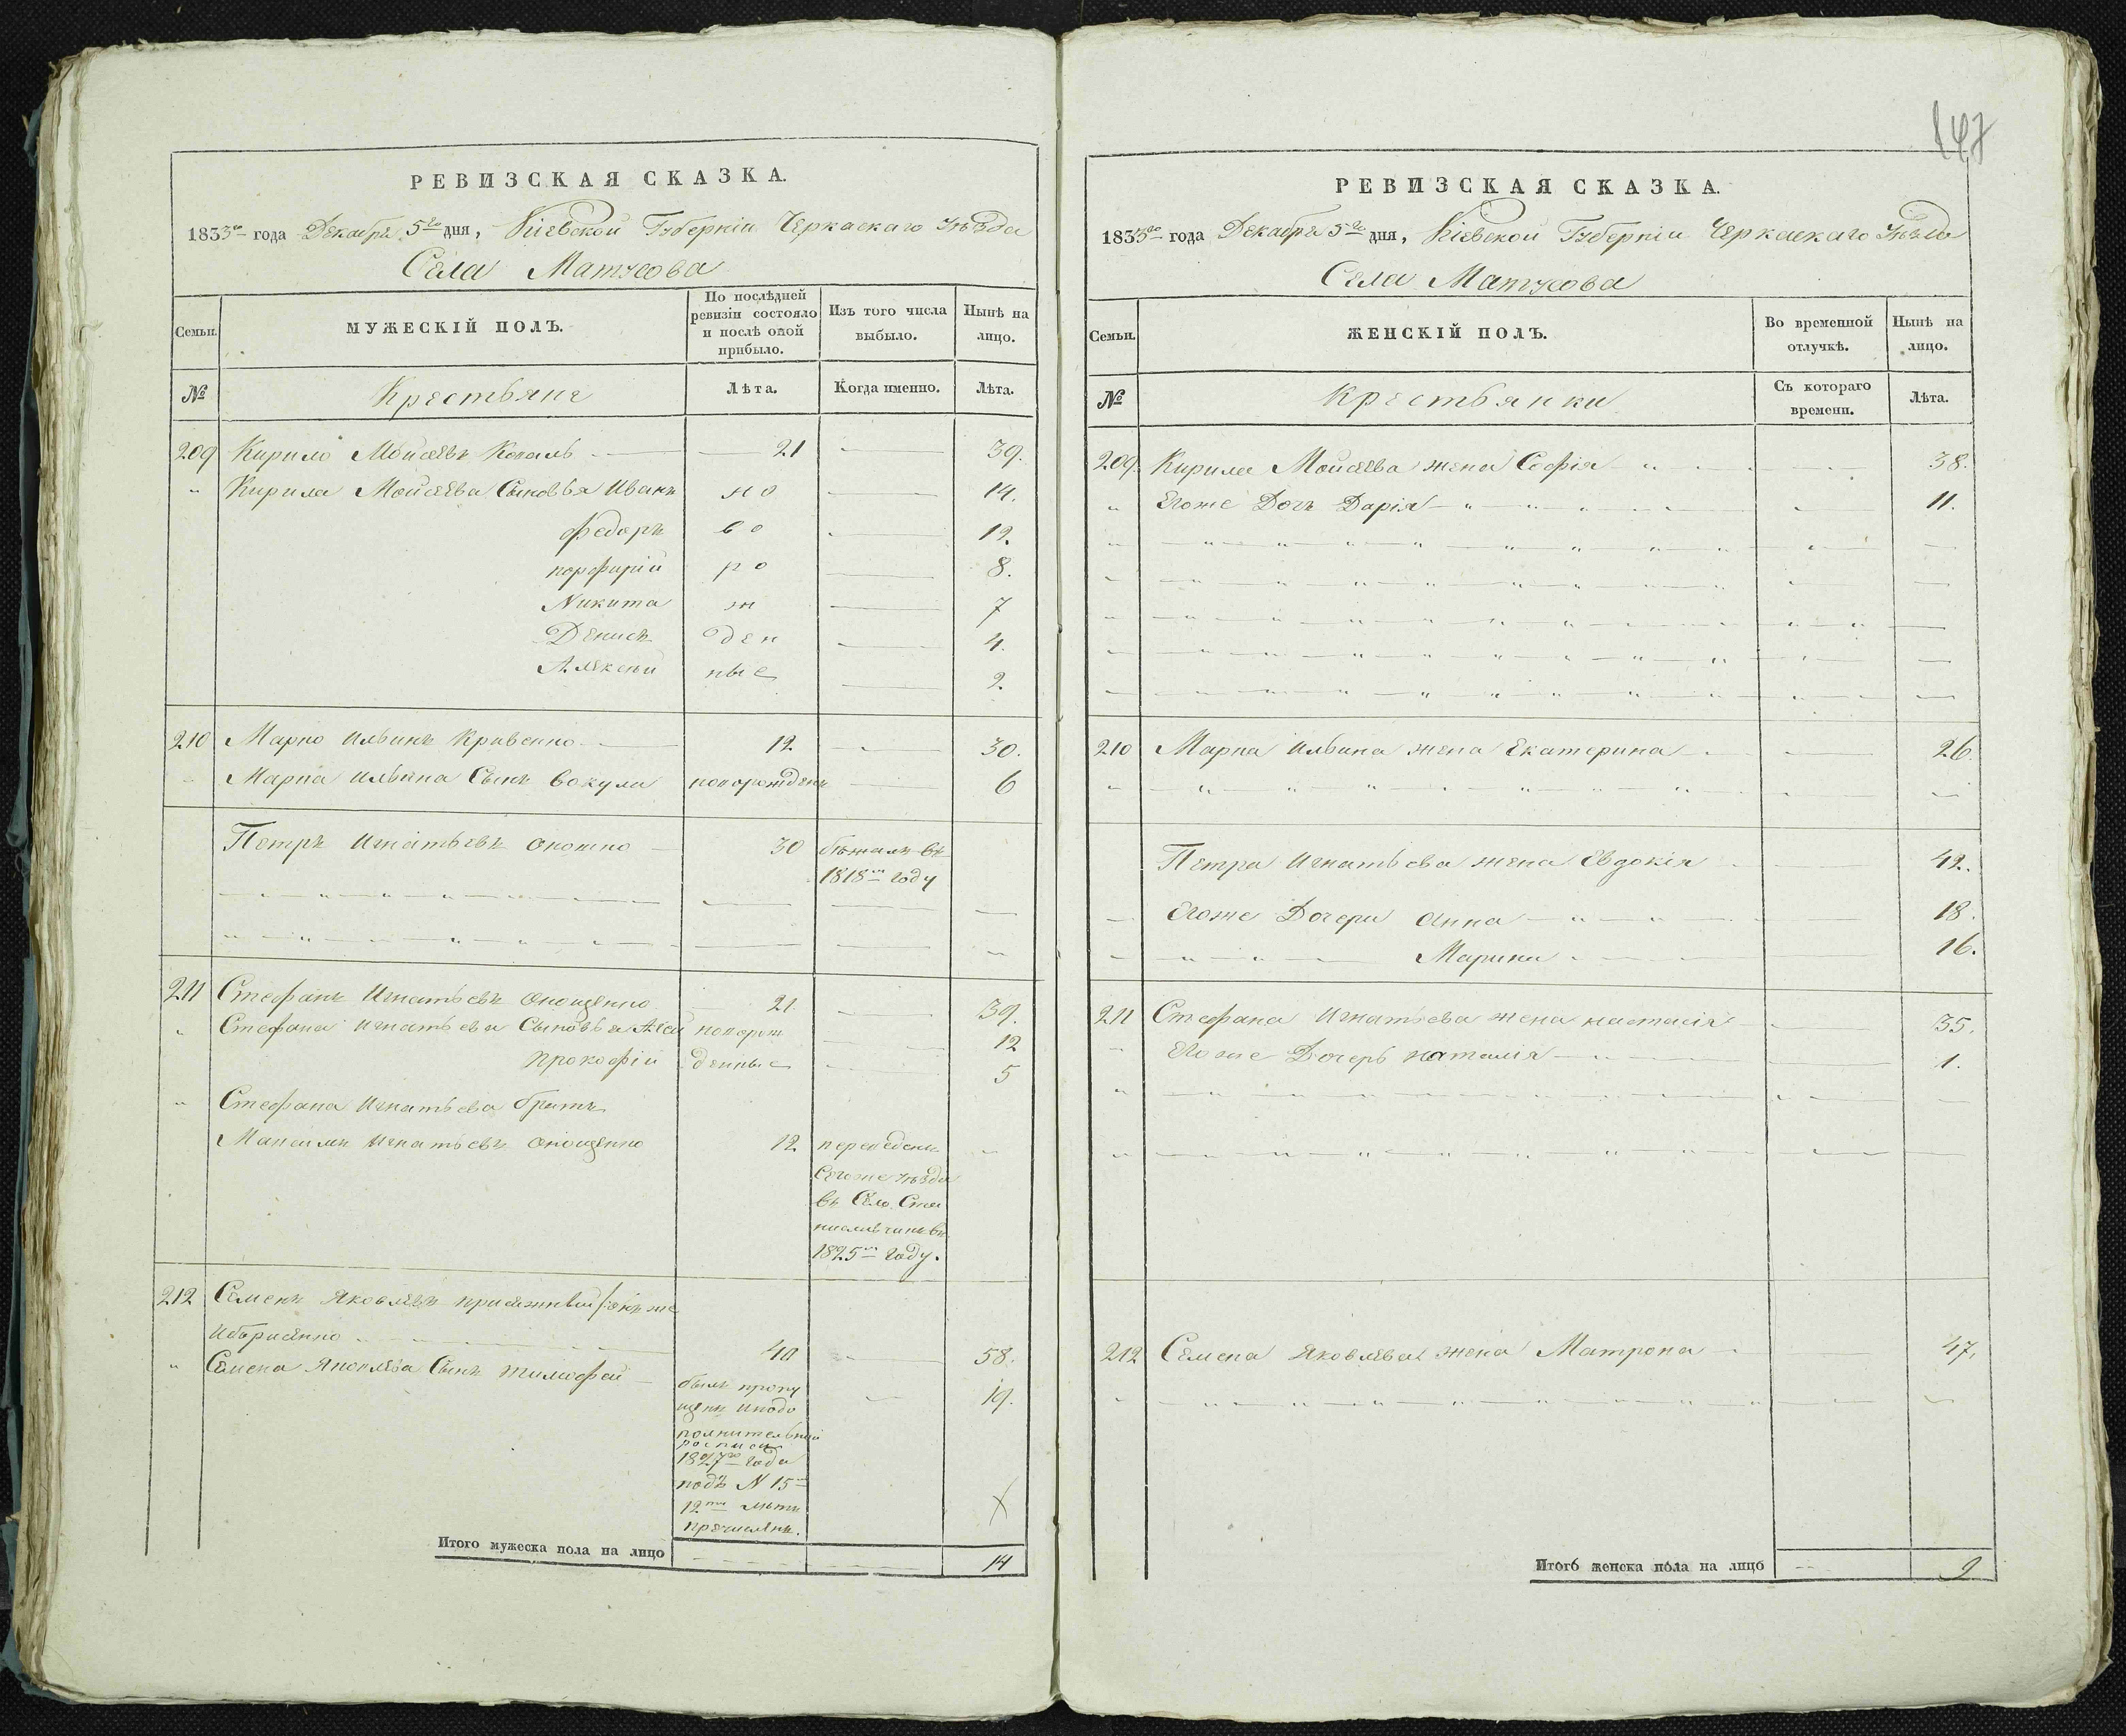 147
РЕВИЗСКАЯ СКАЗКА.
1833го года Декабря 5го дня, Кіевской Губерніи Черкаскаго Уѣзда
Села Матусова
Семьи.
МУЖЕСКІЙ ПОЛЪ.
По послѣдней ревизіи состояло и послѣ оной прибыло.
Изъ того числа выбыло.
Нынѣ на лицо.
№
Крестьяне
Лѣта.
Когда именно.
Лѣта.
209 Кирило Моисѣевъ Коваль 21 39.
" Кирила Моисѣева Сыновья Иванъ но 14.
Федоръ во 12.
порфирій ро 8.
Никита ж 7
Денисъ ден 4.
Алексѣй ные 2.
210 Марко Ильинъ Кривенко 12 30.
Марка Ильина Сынъ Вакула новорожденъ 6
Петръ Игнатьевъ 30 бѣжалъ въ
1818м году
211 Стефанъ Игнатьевъ Онощенко 21. 39.
" Стефана Игнатьева Сыновья новорож 12
Прокофій денные 5
" Стефана Игнатьева братъ
Максимъ Игнатьевъ Онощенко 12 переведенъ
Сегоже уѣзда
въ Село Ста
ниславчикъ въ
1825м году.
212 Семенъ Яковлевъ онъ же
40 58.
" Семена Яковлева Сынъ Тимофей 19.
былъ пропу
щенъ и по до
полнительной
росписи
1827го года
подъ N 15м
12ти лѣтъ
причисленъ.
Итого мужеска пола на лицо 14
РЕВИЗСКАЯ СКАЗКА.
1833го года Декабря 5го дня, Кіевской Губерніи Черкаскаго Уѣзда
Села Матусова
Семьи.
ЖЕНСКІЙ ПОЛЪ.
Во временной отлучкѣ.
Нынѣ на лицо.
№
Крестьянки
Съ котораго времени.
Лѣта.
209. Кирила Моисѣева жена Софія 38.
" Егоже Дочь Дарія 11.
210 Марка Ильина жена Екатерина 26.
Петра Игнатьева жена Евдокія 42.
Егоже Дочери Анна 18.
Марина 16.
211 Стефана Игнатьева жена настасія 35.
" Егоже Дочерь наталія 1.
212 Семена Яковлева жена Матрона 47.
Итого женска пола на лицо 9